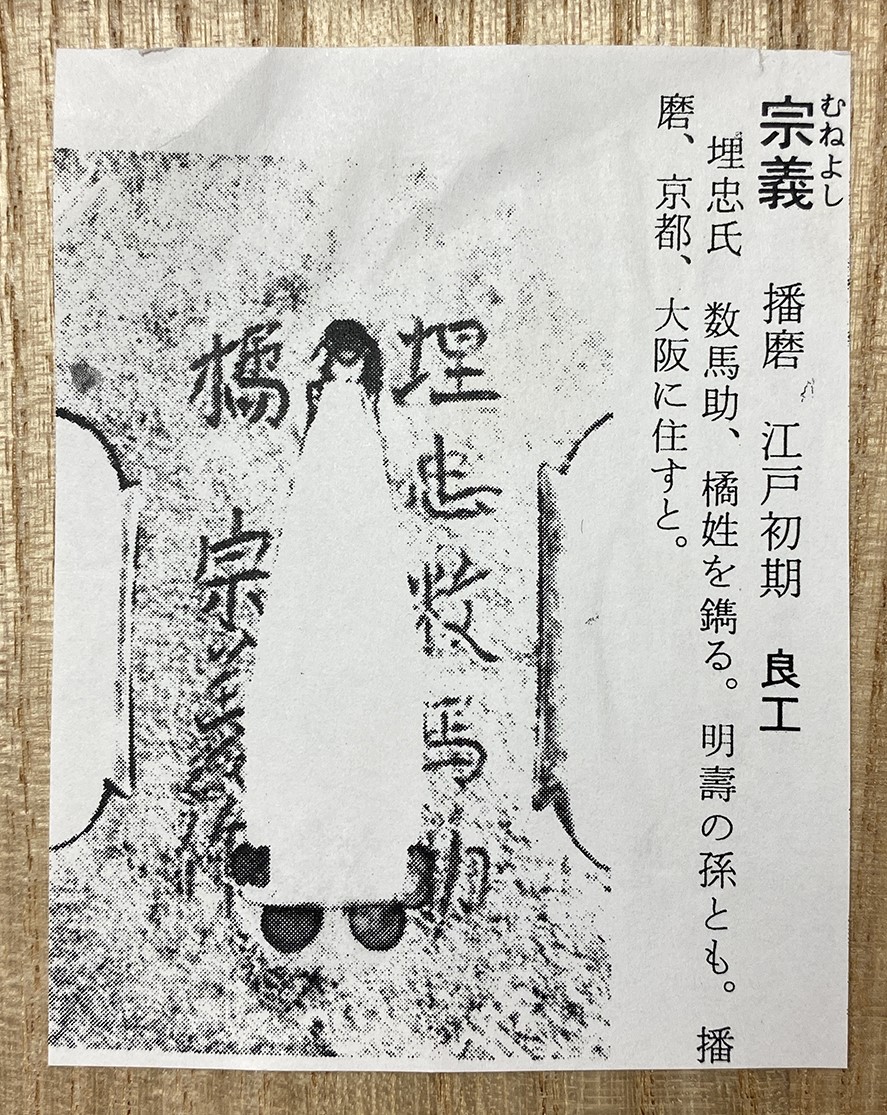 むねよし
宗義 播磨 江戸初期 良工
埋忠氏 数馬助、橘姓を鐫る。明壽の孫とも。播
磨、京都、大阪に住すと。
埋忠数馬助
橘宗義作